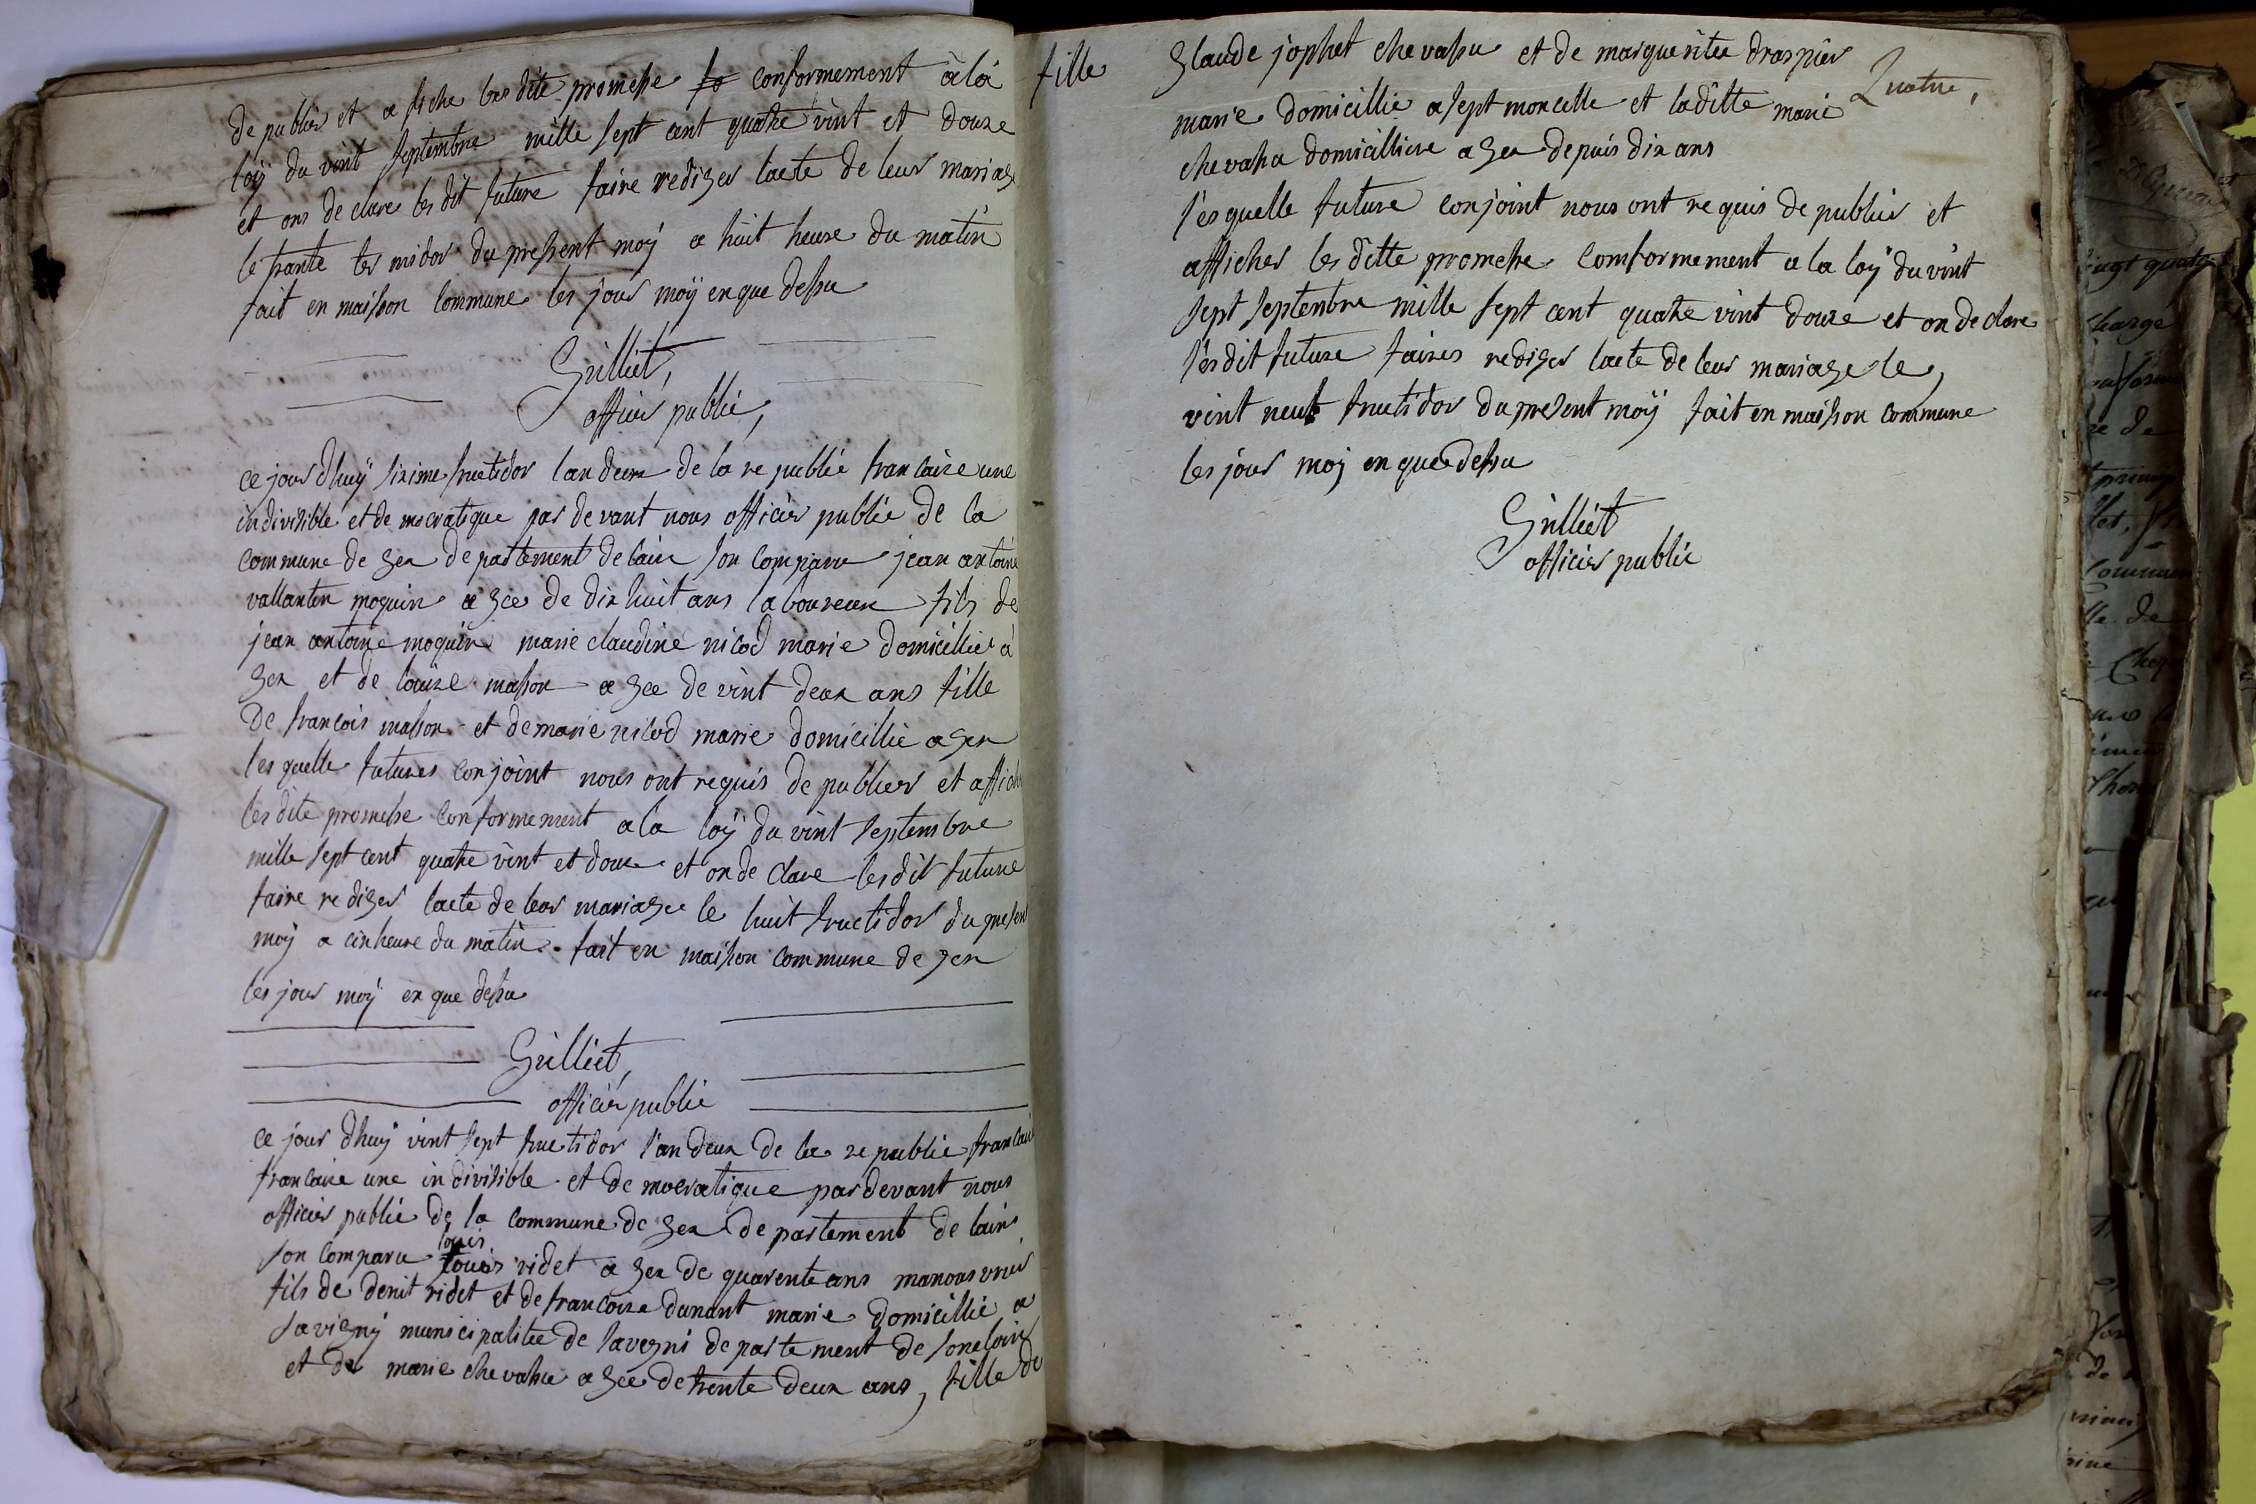 de publier et a fiche les dite promesse conformement a la
loÿ du vint septembre mille sept cent quatre vint et douze
et ons de clare les dit future faire rediger lacte de leur mariage
le trante ter midor du present moÿ a huit heure du matin
fait en maisson commune les jour moÿ en que dessu
Grilliet,
officier public,
ce jour dhuÿ sixime fructidor lan deux de la re public francaize une
indivisible et de mocratique par devant nous officier public de la
commune de gex de partement de lain son comparu jean antoine
vallantin moquin a gée de dix huit ans laboureur fils de
jean antoine moquin marie claudine nicod marie domicillié a
gex et de louize masson a gée de vint deux ans fille
de francois masson et de marie nicod marie domicillie a gex
les quelle futures conjoint nous ont requis de publier et affiche
les dite promesse conformement a la loÿ du vint septembre
mille sept cent quatre vint et douze et on de clare les dit future
faire re diger lacte de leur mariage le huit fructidor du present
moÿ a cix heure du matin fait en maisson commune de gex
les jour moÿ en que dessu
Grilliet,
officier public
ce jour dhuÿ vint sept fructidor lan deux de la re public francaize
francaize une in divisible et de mocratique par devant nous
officier public de la commune de gex de partement de lain
louis
son comparu louis ridet a gex de quarente ans manouvrier
fils de denit ridet et de francoise dunant marie domicillié a
savigny municipalitee de savegni de parte ment de soneloire
et de marie chevassu a gée de trente deux ans, fille de
fille glaude jophet chevassu et de marguerite draspier
Quatre,
marie domicillie a sept moncelle et la ditte marie
chevassu domicilliere a gex depuis dix ans
lesquelle future conjoint nous ont requis de publier et
afficher les ditte promesse comformement a la loÿ du vint
sept septembre mille sept cent quatre vint douze et on de clare
lesdit future faires rediger lacte de leur mariage le,
vint neuf fructidor du present moÿ fait en maisson commune
les jour moÿ en que dessu
Grilliet
officier public